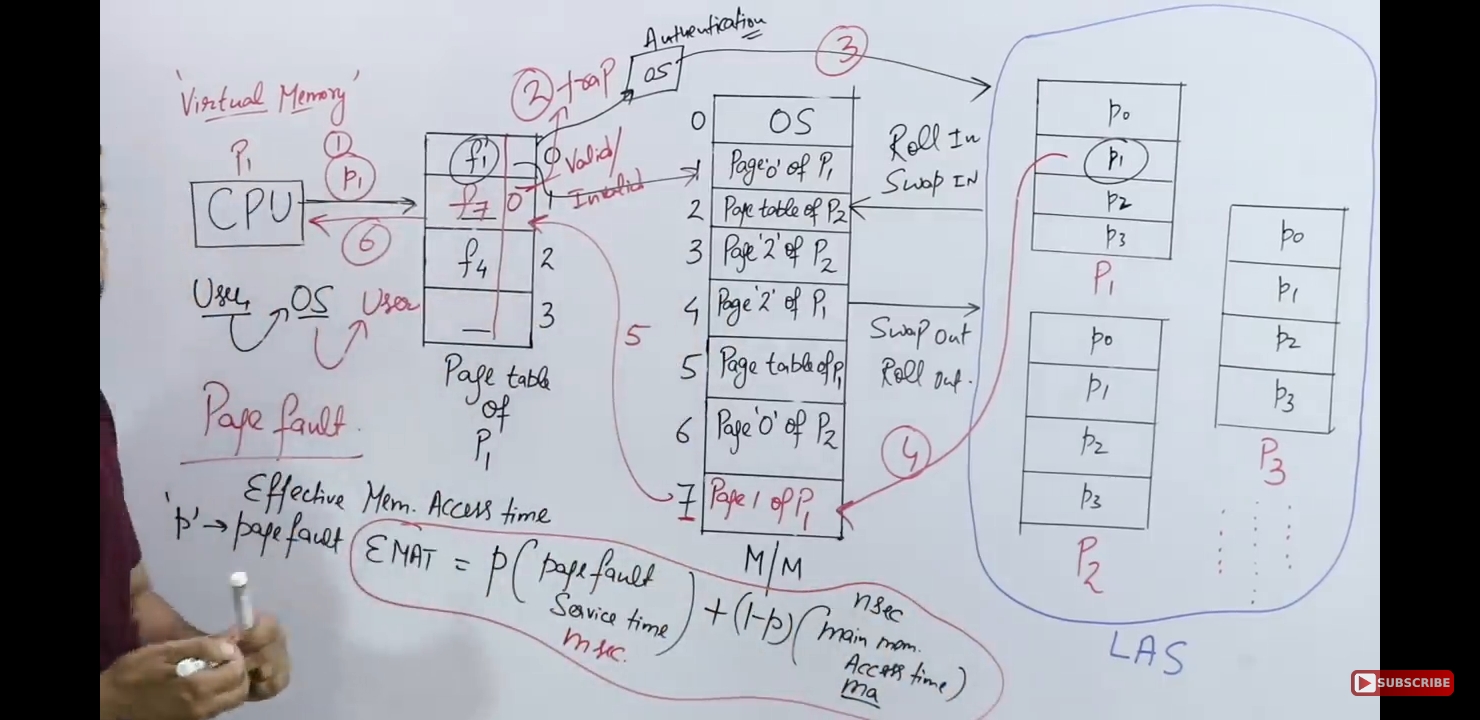 Authentication
'Virtual Memory'
P1
CPU
①
p1
⑥
User OS User
Page fault.
② trap
OS
③
f1
f7 0
f4 2
— 3
0
1
Valid/
Invalid
Page table
of
P1
0 OS
1 Page '0' of P1
2 Page table of P2
3 Page '2' of P2
4 Page '2' of P1
5 Page table of P1
6 Page '0' of P2
7 Page 1 of P1
M/M
5
④
Roll In
Swap IN
Swap Out
Roll Out.
p0
p1
p2
p3
P1
p0
p1
p2
p3
P2
p0
p1
p2
p3
P3
LAS
Effective Mem. Access time
'p' → page fault
EMAT = p(page fault Service time) + (1-p)(main mem. Access time)
msec.
nsec
ma
SUBSCRIBE